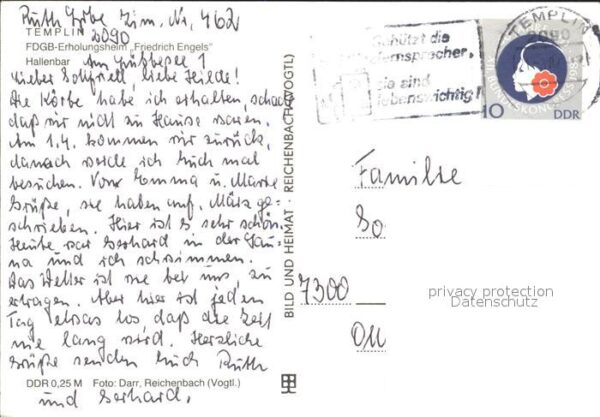 Ruth Zim. Nr. 462
TEMPLIN 2090
FDGB-Erholungsheim „Friedrich Engels"
Hallenbar Am Lübbesee 1
Lieber liebe Hilde!
Die Körbe habe ich erhalten, schade
daß wir nicht zu Hause waren.
Am 1.4. kommen wir zurück,
danach werde ich Euch mal
besuchen. Von Emma u. Marie
Grüße, sie haben auf. März ge-
schrieben. Hier ist es sehr schön.
Heute war Gerhard in der Sau-
na und ich schwimmen.
Das Wetter ist wie bei uns, zu
ertragen. Aber hier ist jeden
Tag etwas los, daß die Zeit
nie lang wird. Herzliche
Grüße senden Euch Ruth
DDR 0,25 M Foto: Darr, Reichenbach (Vogtl.)
und Gerhard.
BILD UND HEIMAT · REICHENBACH (VOGTL)
Schützt die
Fernsprecher,
sie sind
lebenswichtig!
TEMPLIN
2090
10 DDR
Familie
So
7300
Ou
privacy protection
Datenschutz